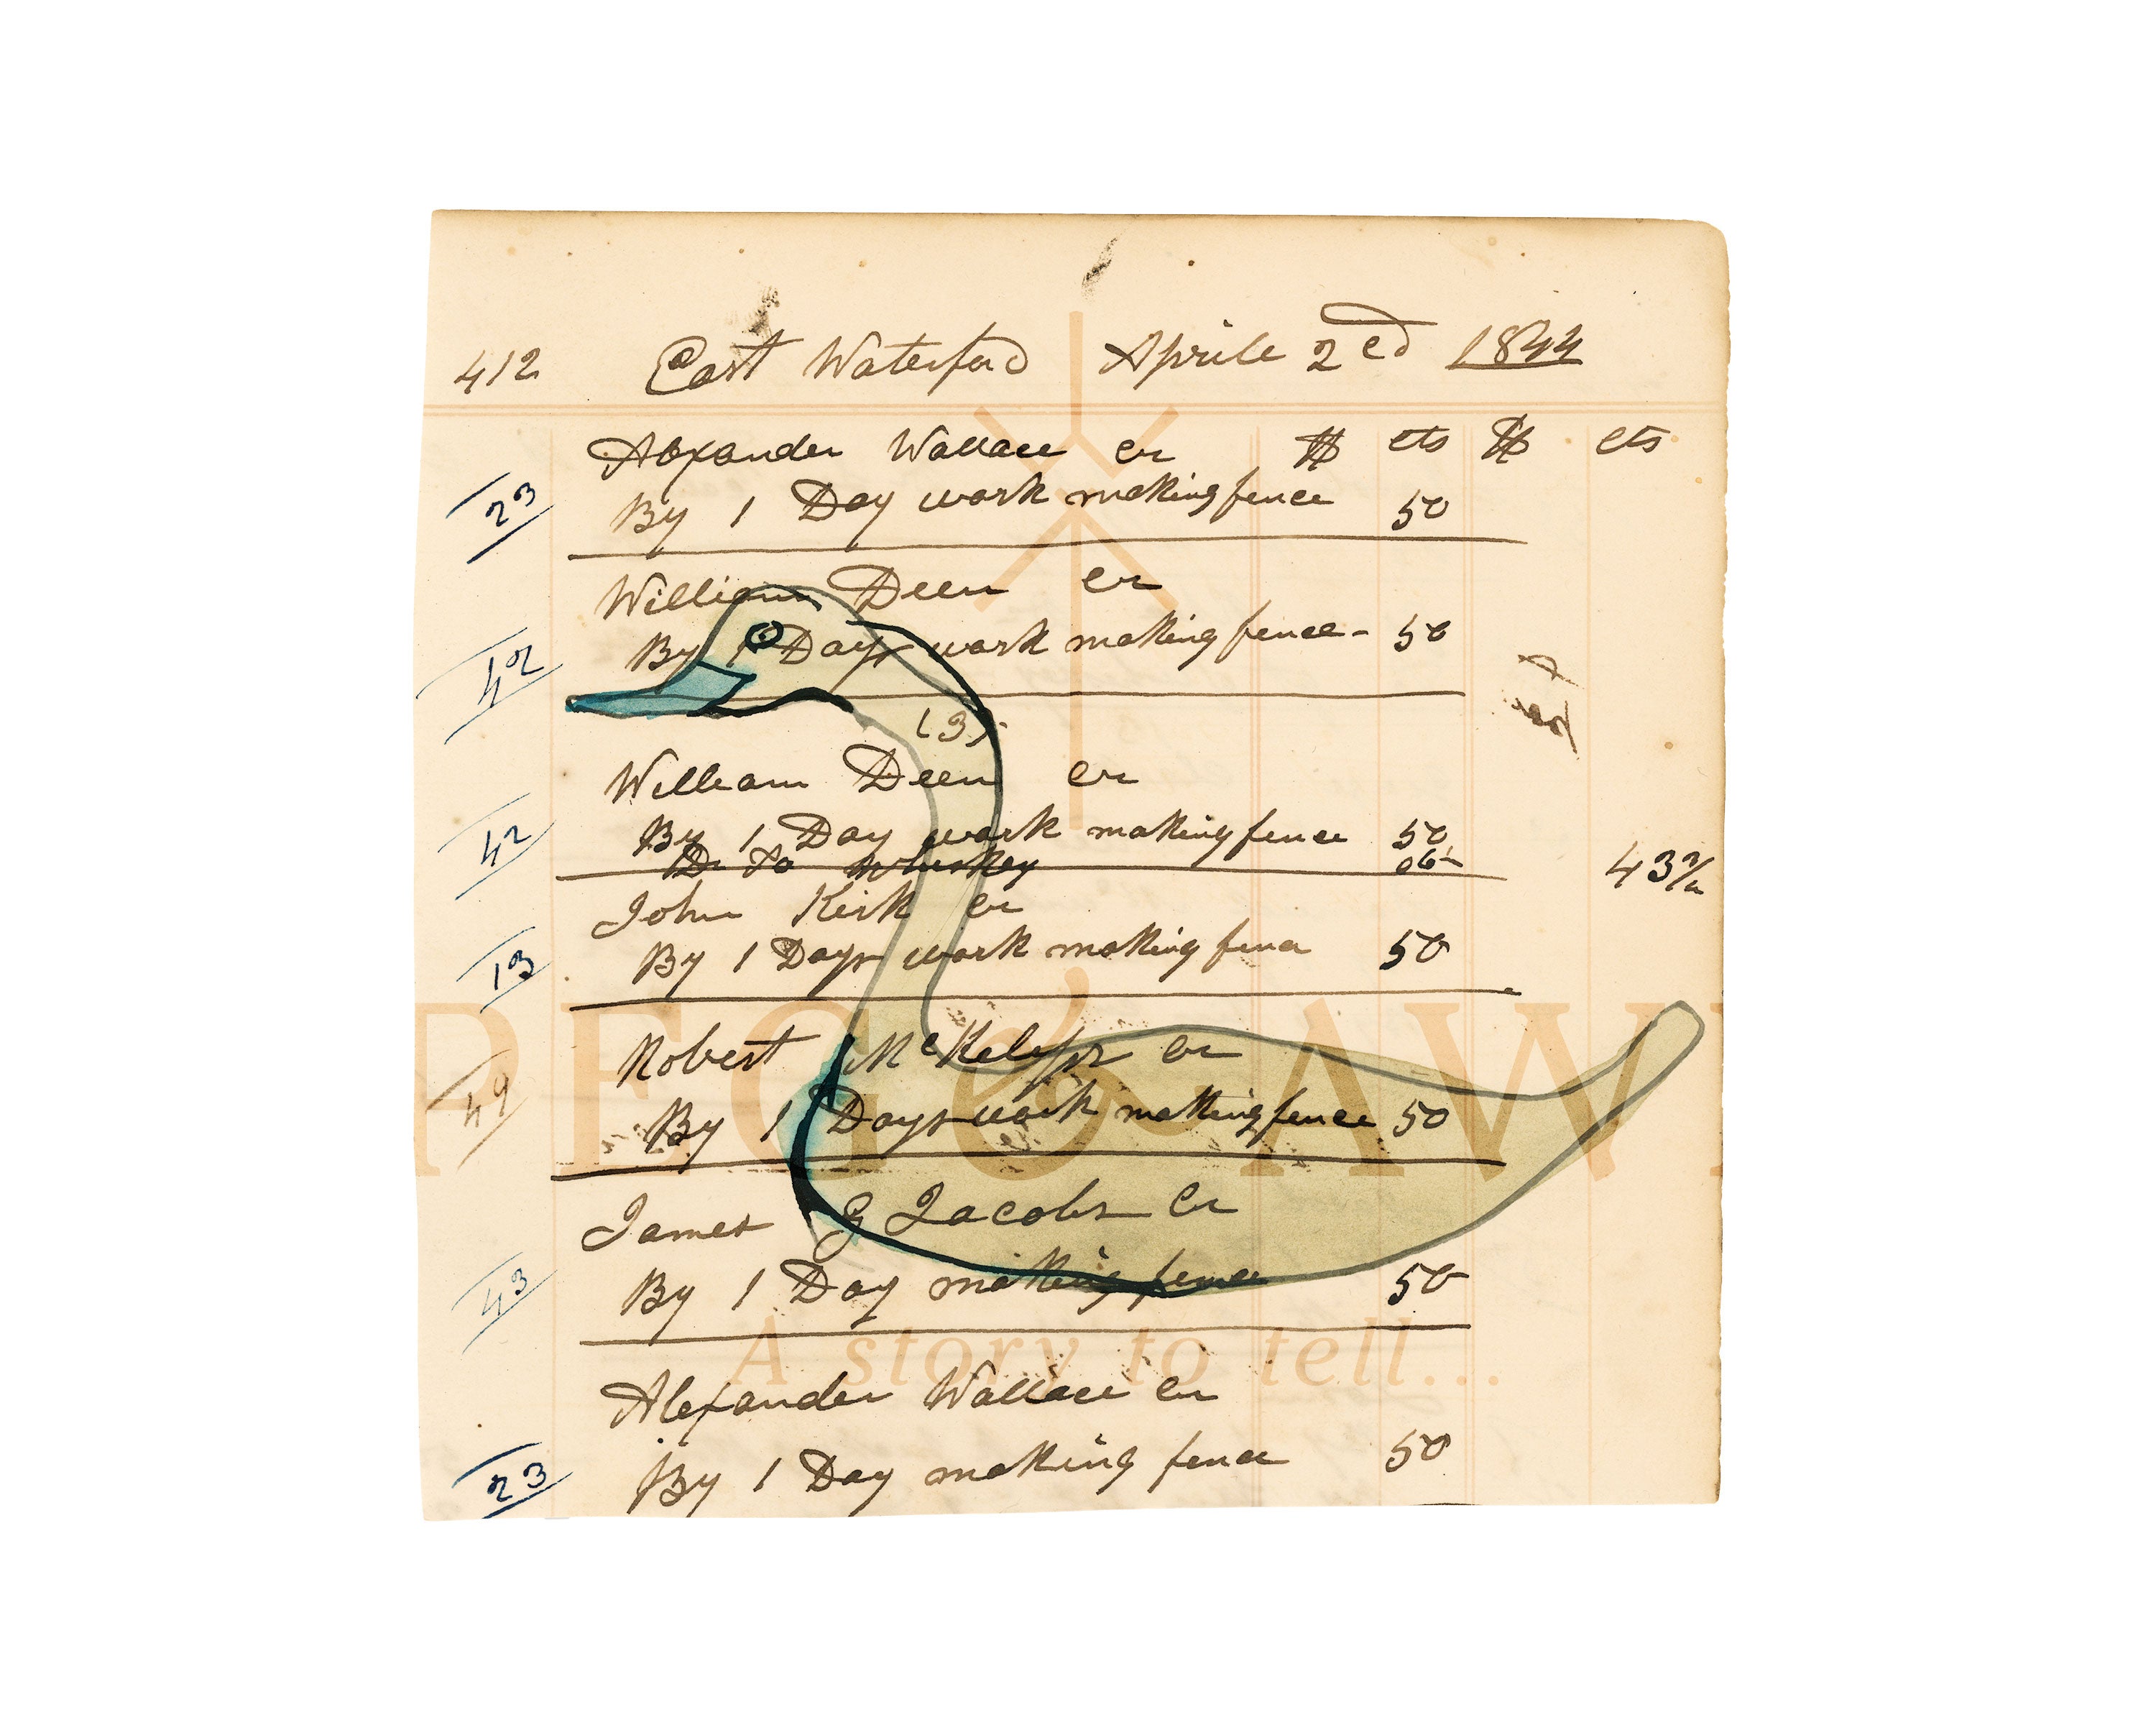 412 East Waterford Aprile 2ed 1844
Alexander Wallace cr $ cts $ cts
23 By 1 Day work making fence 50
William Deen cr
42 By 1 Days work making fence - 50
(3)
William Deen cr
42 By 1 Day work making fence 50
Dr to Whiskey 06¼ 43¾
John Kirk cr
13 By 1 Days work making fence 50
Robert McKelvy cr
49 By 1 Days work making fence 50
PEG & AW
James G Jacobs Cr
43 By 1 Day making fence 50
A story to tell...
Alexander Wallace cr
23 By 1 Day making fence 50